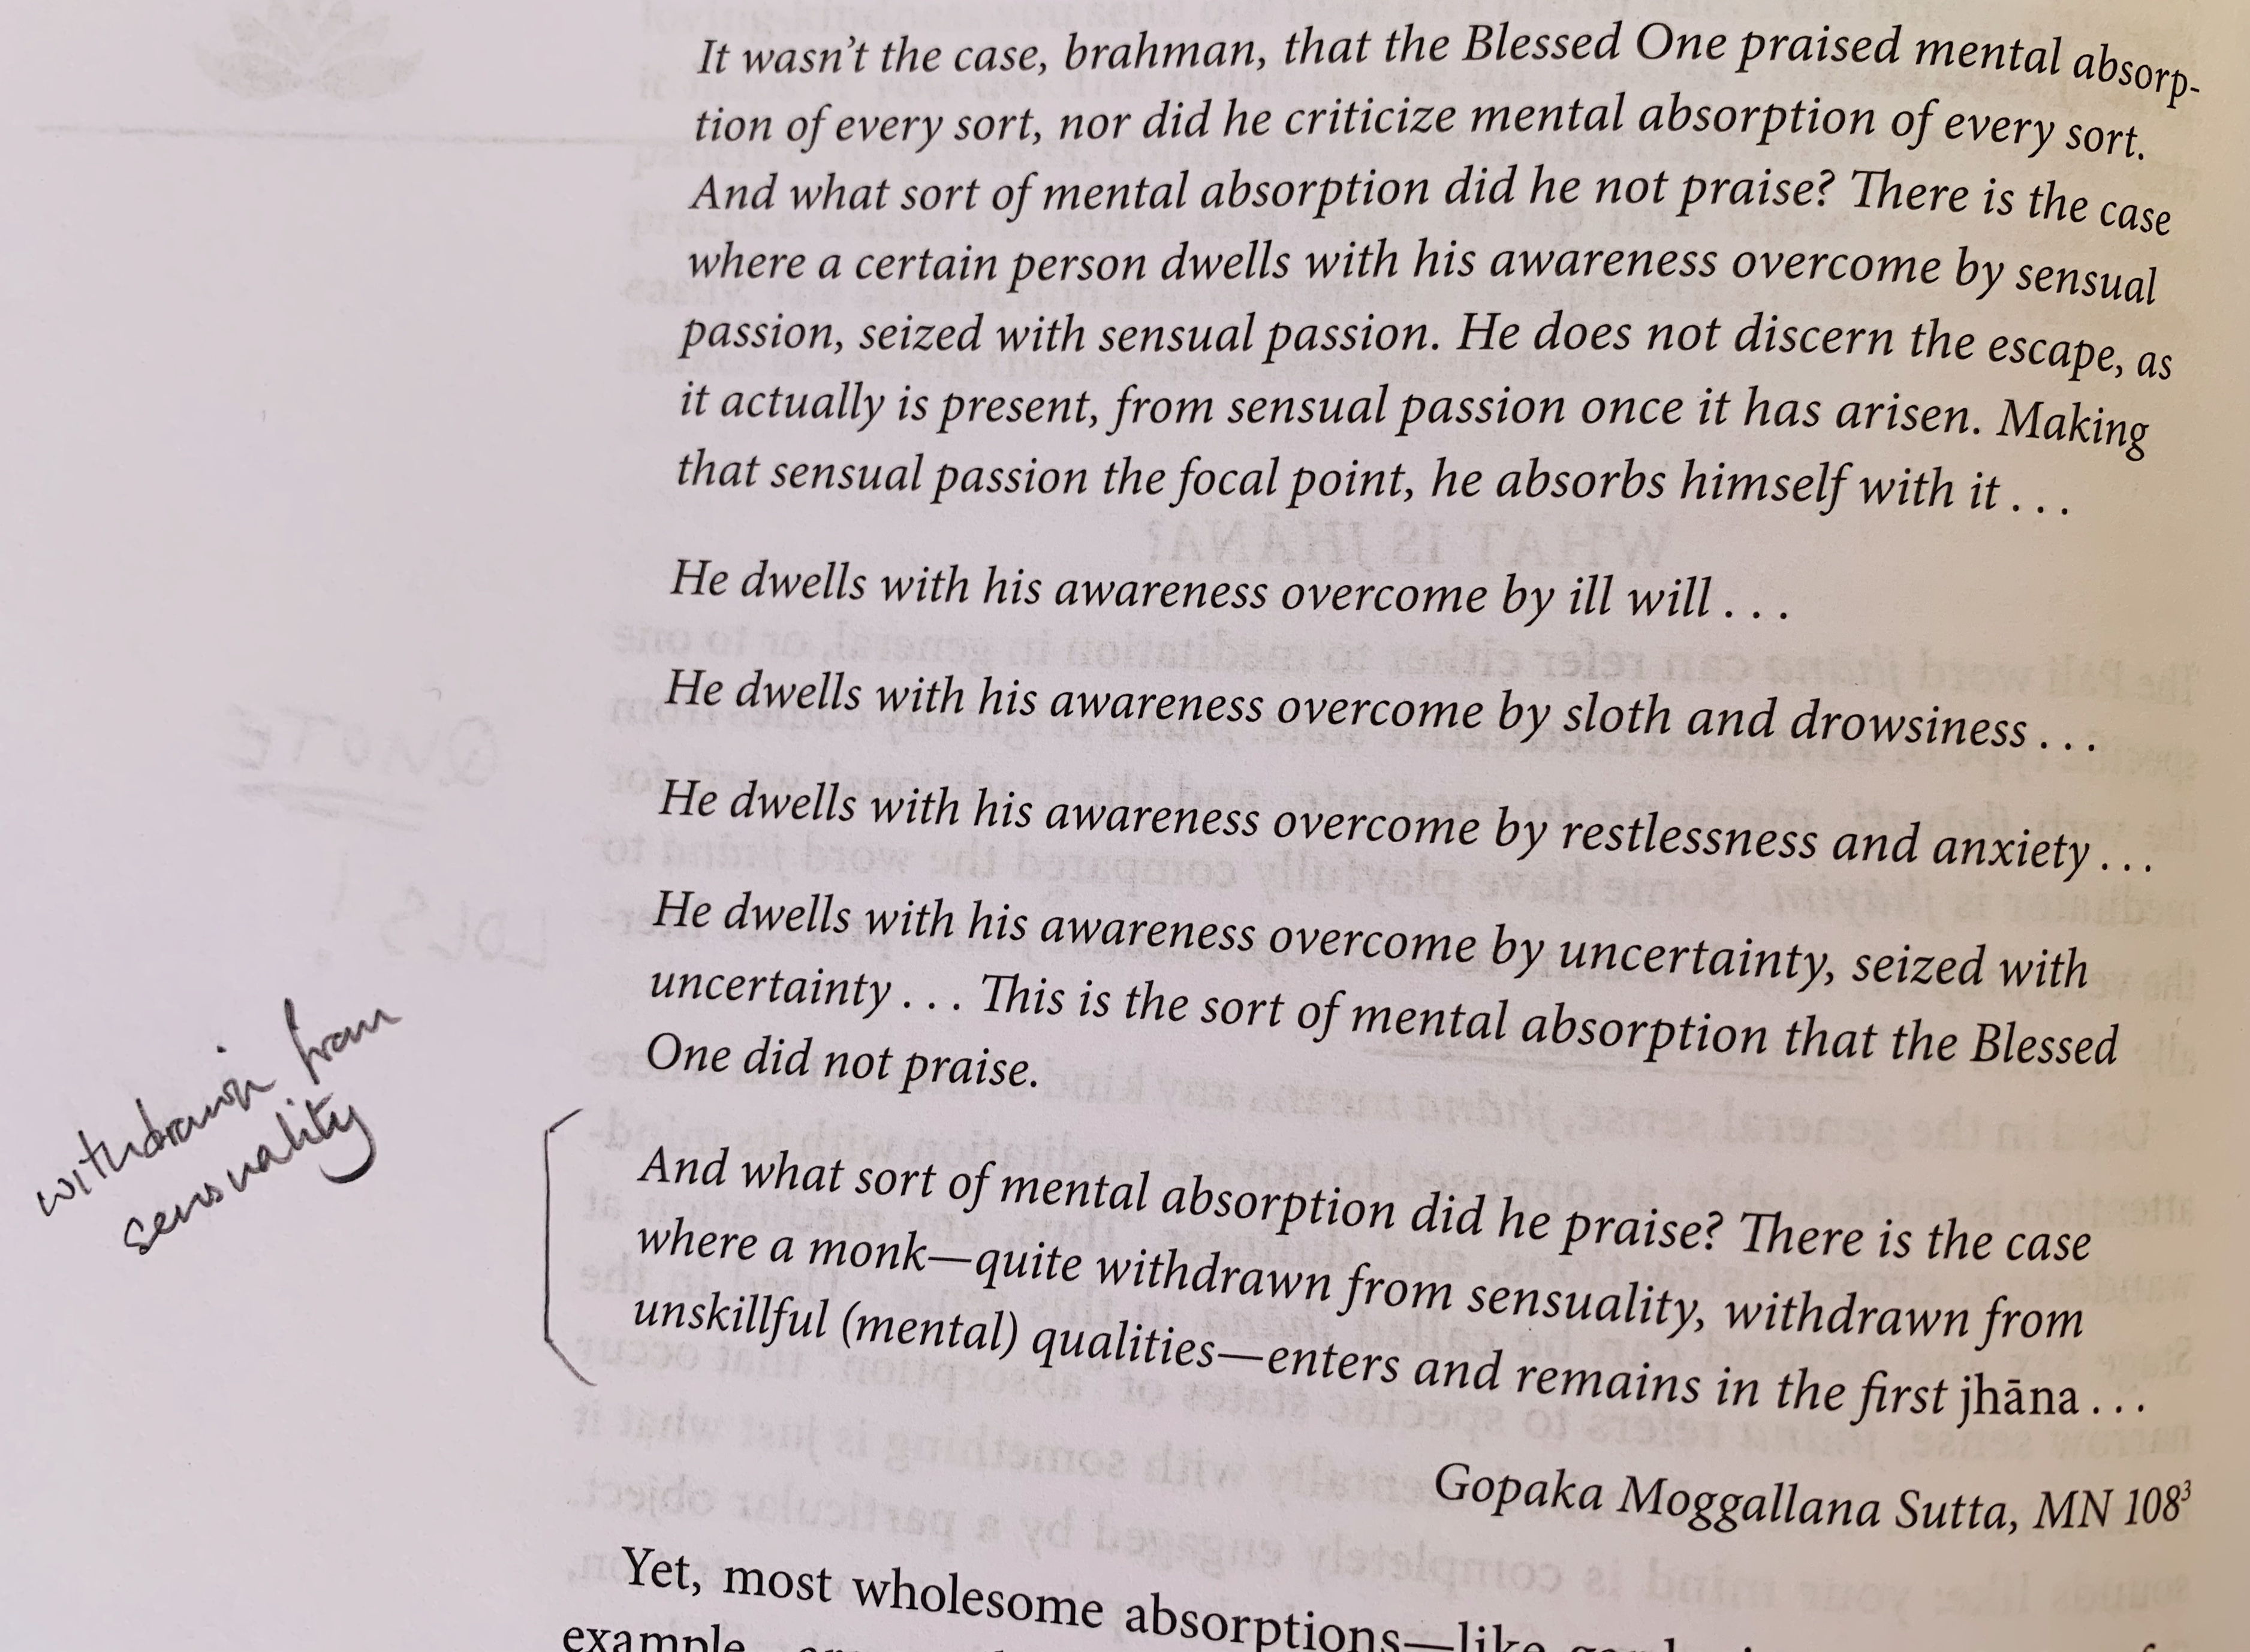 It wasn't the case, brahman, that the Blessed One praised mental absorp-
tion of every sort, nor did he criticize mental absorption of every sort.
And what sort of mental absorption did he not praise? There is the case
where a certain person dwells with his awareness overcome by sensual
passion, seized with sensual passion. He does not discern the escape, as
it actually is present, from sensual passion once it has arisen. Making
that sensual passion the focal point, he absorbs himself with it . . .
He dwells with his awareness overcome by ill will . . .
He dwells with his awareness overcome by sloth and drowsiness . . .
He dwells with his awareness overcome by restlessness and anxiety . . .
He dwells with his awareness overcome by uncertainty, seized with
uncertainty . . . This is the sort of mental absorption that the Blessed
One did not praise.
withdrawin from
sensuality
And what sort of mental absorption did he praise? There is the case
where a monk—quite withdrawn from sensuality, withdrawn from
unskillful (mental) qualities—enters and remains in the first jhāna . . .
Gopaka Moggallana Sutta, MN 108³
Yet, most wholesome absorptions—like
example